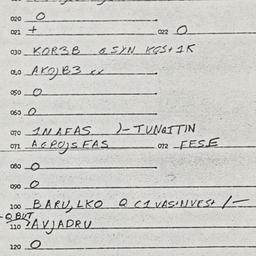 020 O
021 + 022 O
030 KOR3B Q SYN KGS+1K
040 AKOJB3 xx
050 O
060 O
070 1NAFAS )-TUNQITIN
071 AGROJSFAS 072 FESE
080 O
090 O
100 BARU,LKO Q C1VASINVES+ /-
-O BUT
110 ?AVJADRU
120 O